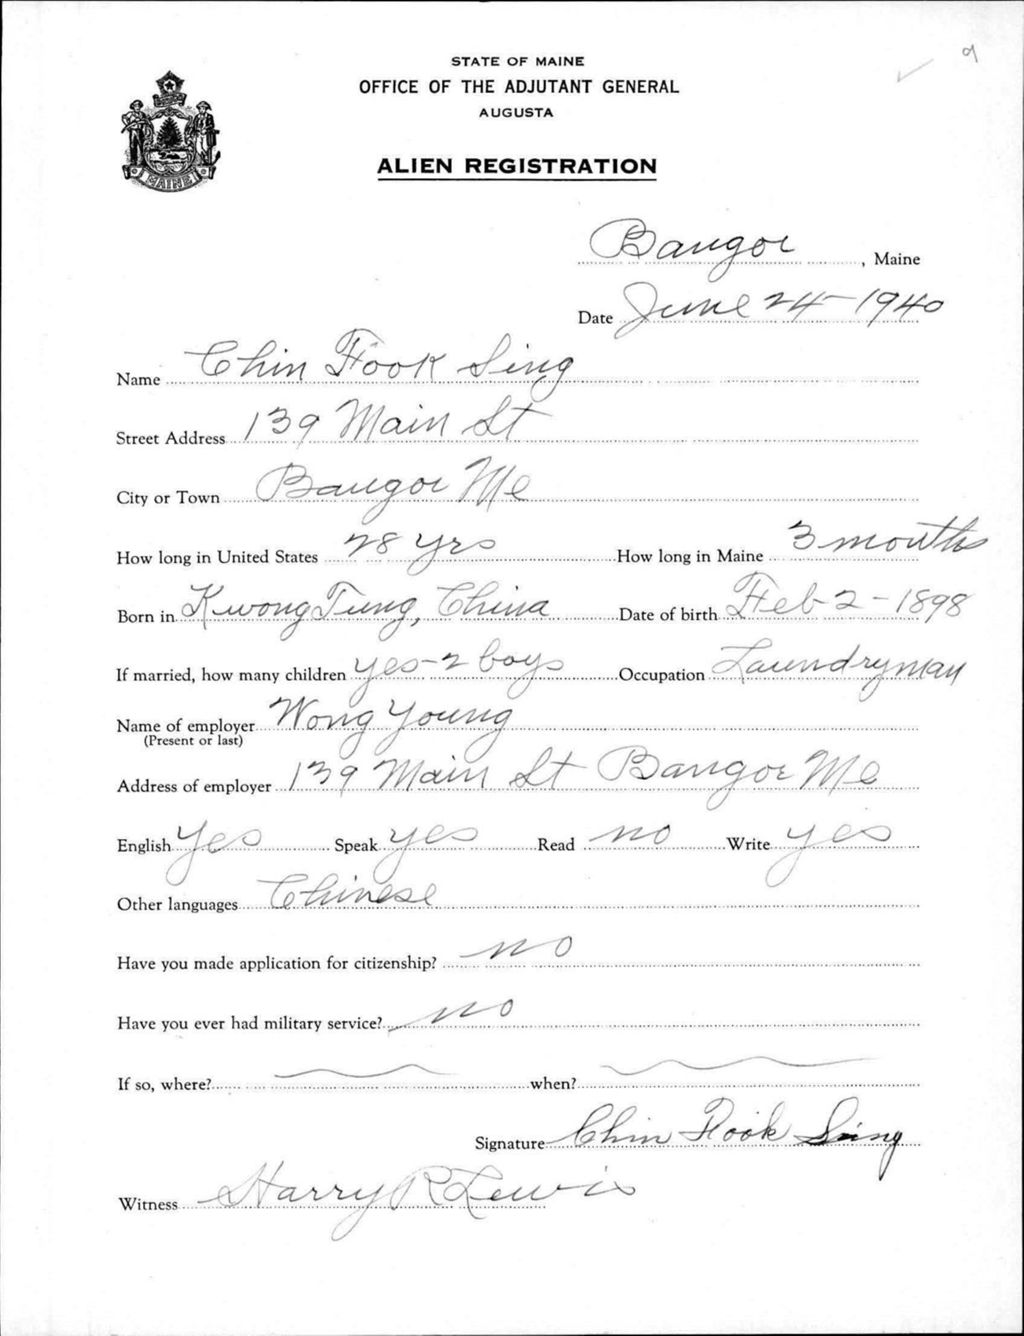 9
STATE OF MAINE
OFFICE OF THE ADJUTANT GENERAL
AUGUSTA
MAINE
ALIEN REGISTRATION
Bangor, Maine
Date June 24-1940
Name Chin Fook Sing
Street Address 139 Main St
City or Town Bangor Me
How long in United States 28 yrs How long in Maine 3 months
Born in Kwong Tung, China Date of birth Feb-2-1898
If married, how many children yes-2 boys Occupation Laundryman
Name of employer Wong Young
(Present or last)
Address of employer 139 Main St Bangor Me
English Yes Speak yes Read no Write yes
Other languages Chinese
Have you made application for citizenship? no
Have you ever had military service? no
If so, where? when?
Signature Chin Fook Sing
Witness Harry R Lewis